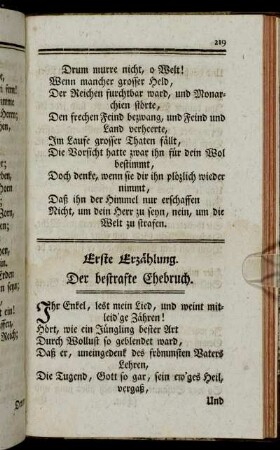 219
Drum murre nicht, o Welt!
Wenn mancher grosser Held,
Der Reichen furchtbar ward, und Monar-
chien störte,
Den frechen Feind bezwang, und Feind und
Land verheerte,
Im Laufe grosser Thaten fällt,
Die Vorsicht hatte zwar ihn für dein Wol
bestimmt,
Doch denke, wenn sie dir ihn plözlich wieder
nimmt,
Daß ihn der Himmel nur erschaffen
Nicht, um dein Herr zu seyn, nein, um die
Welt zu strafen.
Erste Erzählung.
Der bestrafte Ehebruch.
Ihr Enkel, lest mein Lied, und weint mit-
leid'ge Zähren!
Hört, wie ein Jüngling bester Art
Durch Wollust so geblendet ward,
Daß er, uneingedenk des frömmsten Vaters
Lehren,
Die Tugend, Gott so gar, sein ew'ges Heil,
vergaß,
Und